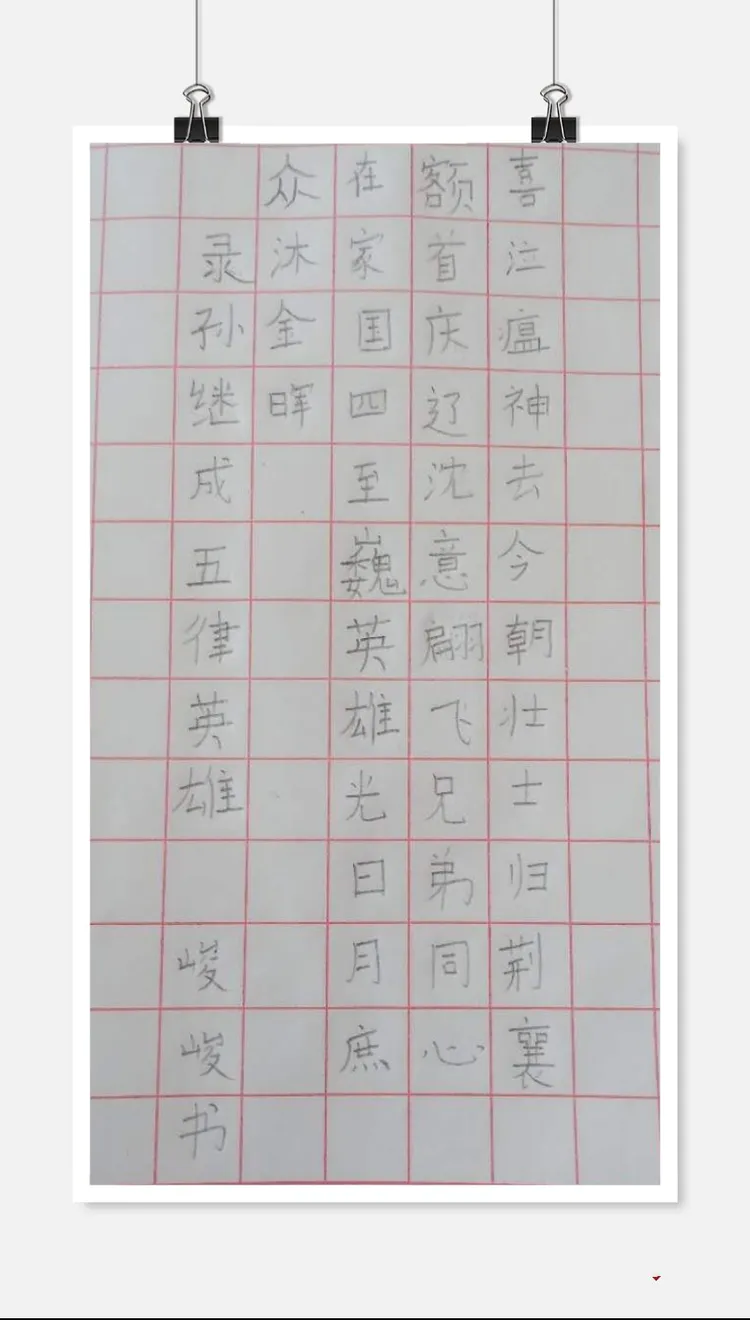 喜泣瘟神去今朝壮士归荆襄
额首庆辽沈意翩飞兄弟同心
在家国四至巍英雄光日月庶
众沐金晖
录孙继成五律英雄 峻峻书